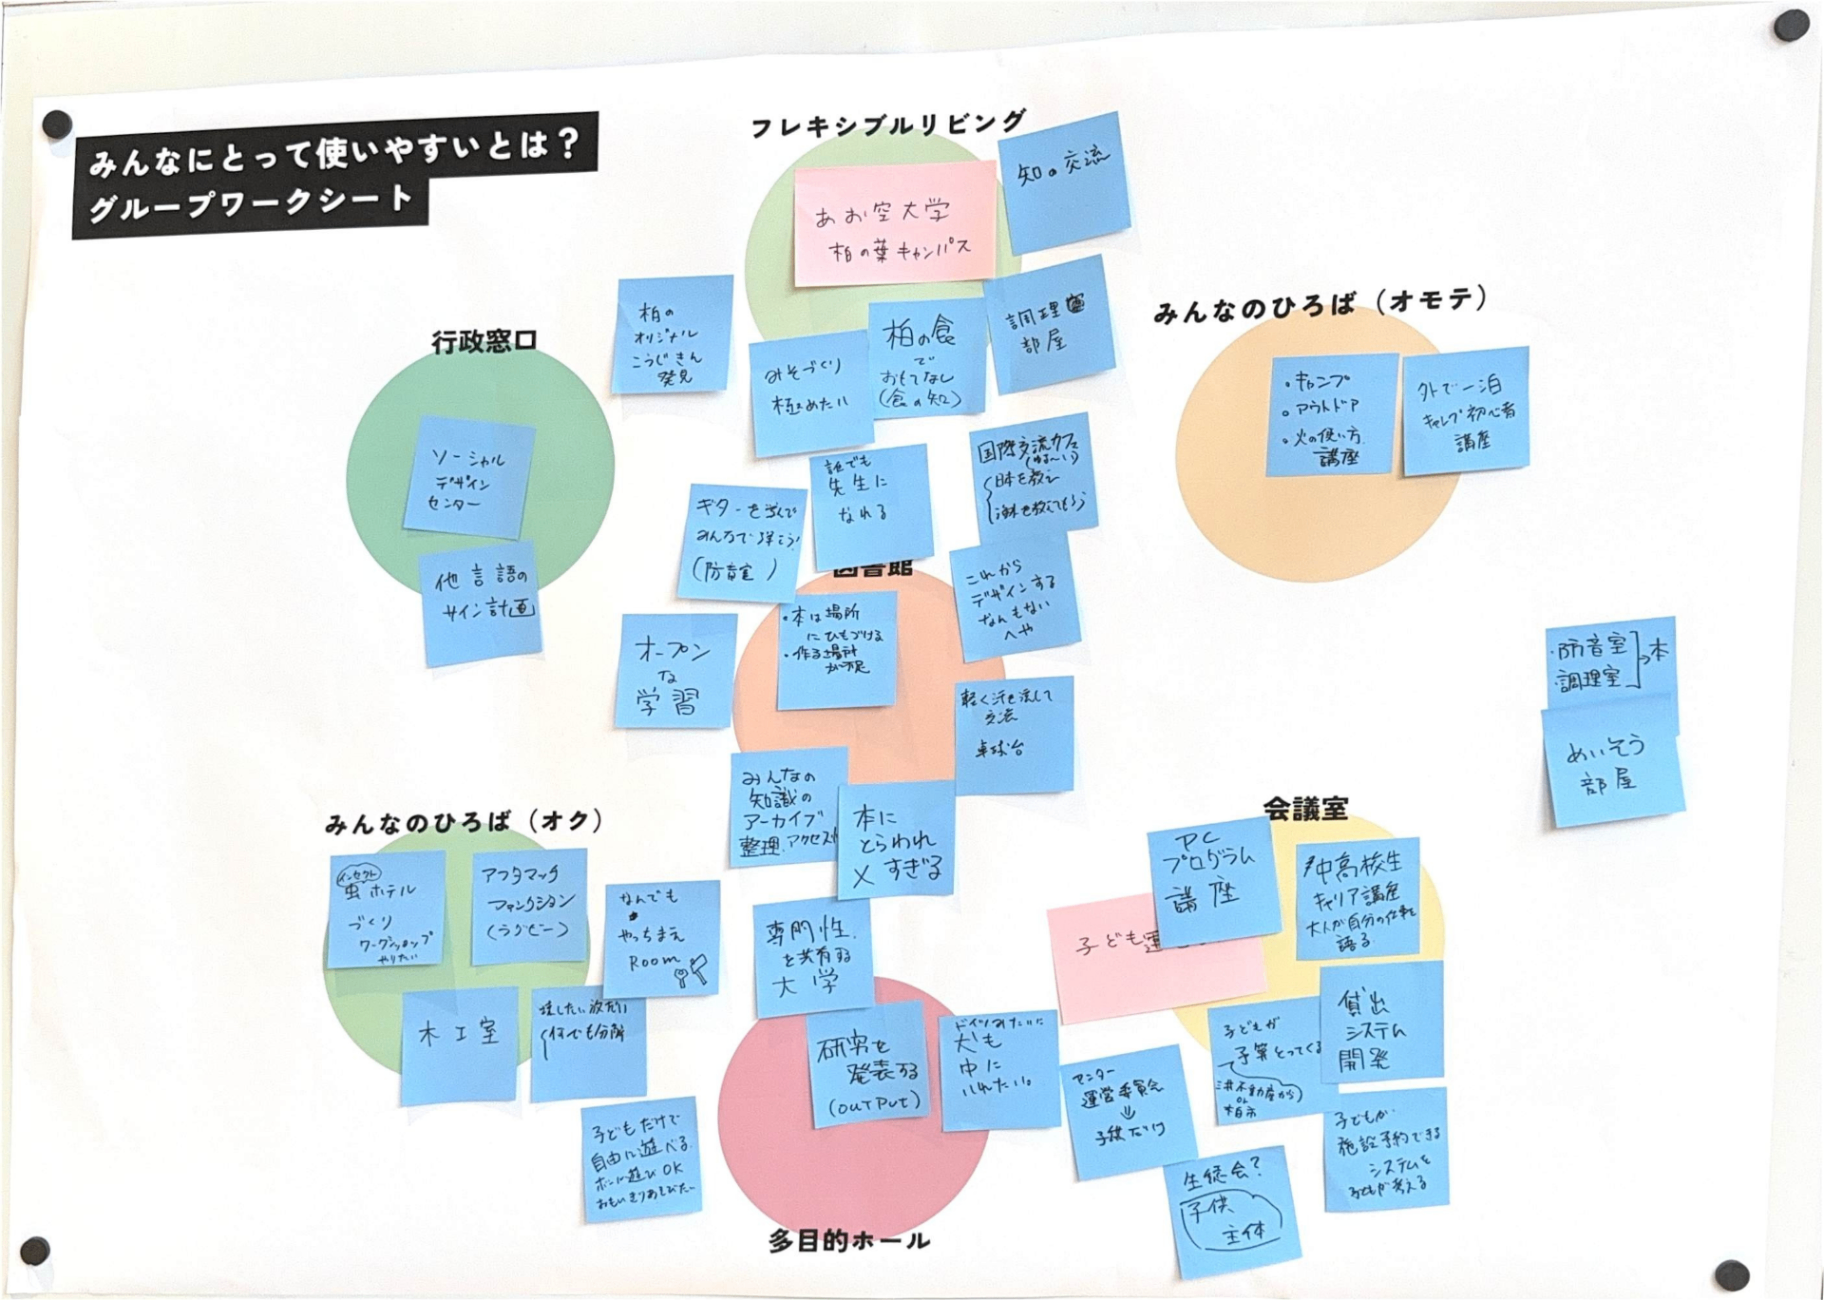 みんなにとって使いやすいとは？
グループワークシート
フレキシブルリビング
あお空大学
柏の葉キャンパス
知の交流
柏の
オリジナル
こうじきん
発見
みそづくり
極めたい
柏の食
で
おもてなし
(食の知)
調理室
部屋
みんなのひろば（オモテ）
・キャンプ
・アウトドア
・火の使い方
講座
外で一泊
キャンプ初心者
講座
行政窓口
ソーシャル
デザイン
センター
他言語の
サイン計画
ギターを学んで
みんなで弾こう!
(防音室)
誰でも
先生に
なれる
国際交流カフェ
日本を教え
海外を教えてもらう
これから
デザインする
なんもない
へや
図書館
・本は場所
にひもづける
・作る場所
が不足
オープン
な
学習
軽く汗を流して
交流
卓球台
みんなの
知識の
アーカイブ
整理、アクセス
本に
とらわれ
× すぎる
・防音室
・調理室
→本
めいそう
部屋
みんなのひろば（オク）
インセクト
虫ホテル
づくり
ワークショップ
やりたい
アフタマッチ
ファンクション
(ラグビー)
なんでも
やっちまえ
ROOM
木工室
何でも分解
子どもだけで
自由に遊べる
ボール遊びOK
おもいきりあそびたい
専門性
を共有する
大学
研究を
発表する
(OUTPUT)
ドイツみたいに
犬も
中に
いれたい。
多目的ホール
会議室
PC
プログラム
講座
中高校生
キャリア講座
大人が自分の仕事を
語る
子ども運
子どもが
予算とってくる
三井不動産から
or
柏市
貸出
システム
開発
センター
運営委員会
⇓
子供だけ
生徒会?
子供
主体
子どもが
施設予約できる
システムを
子どもが考える